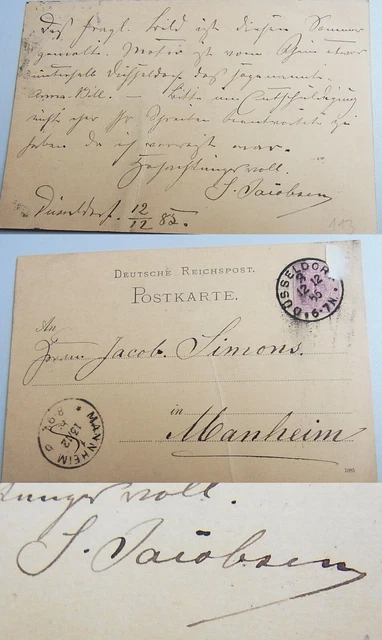 Das fragl. Bild ist diesen Sommer
gemalt. Motiv ist vom Rhein etwas
unterhalb Düsseldorf das sogenannte
Bitte um Entschuldigung
nicht eher Ihr Schreiben beantwortet zu
haben da ich verreist war.
Hochachtungsvoll.
S. Jacobsen
Düsseldorf. 12/12 85.
DEUTSCHE REICHSPOST.
POSTKARTE.
DÜSSELDORF
12 12
6-7N.
An
Herrn Jacob Simons.
in Manheim
MANNHEIM
13/12
S. Jacobsen